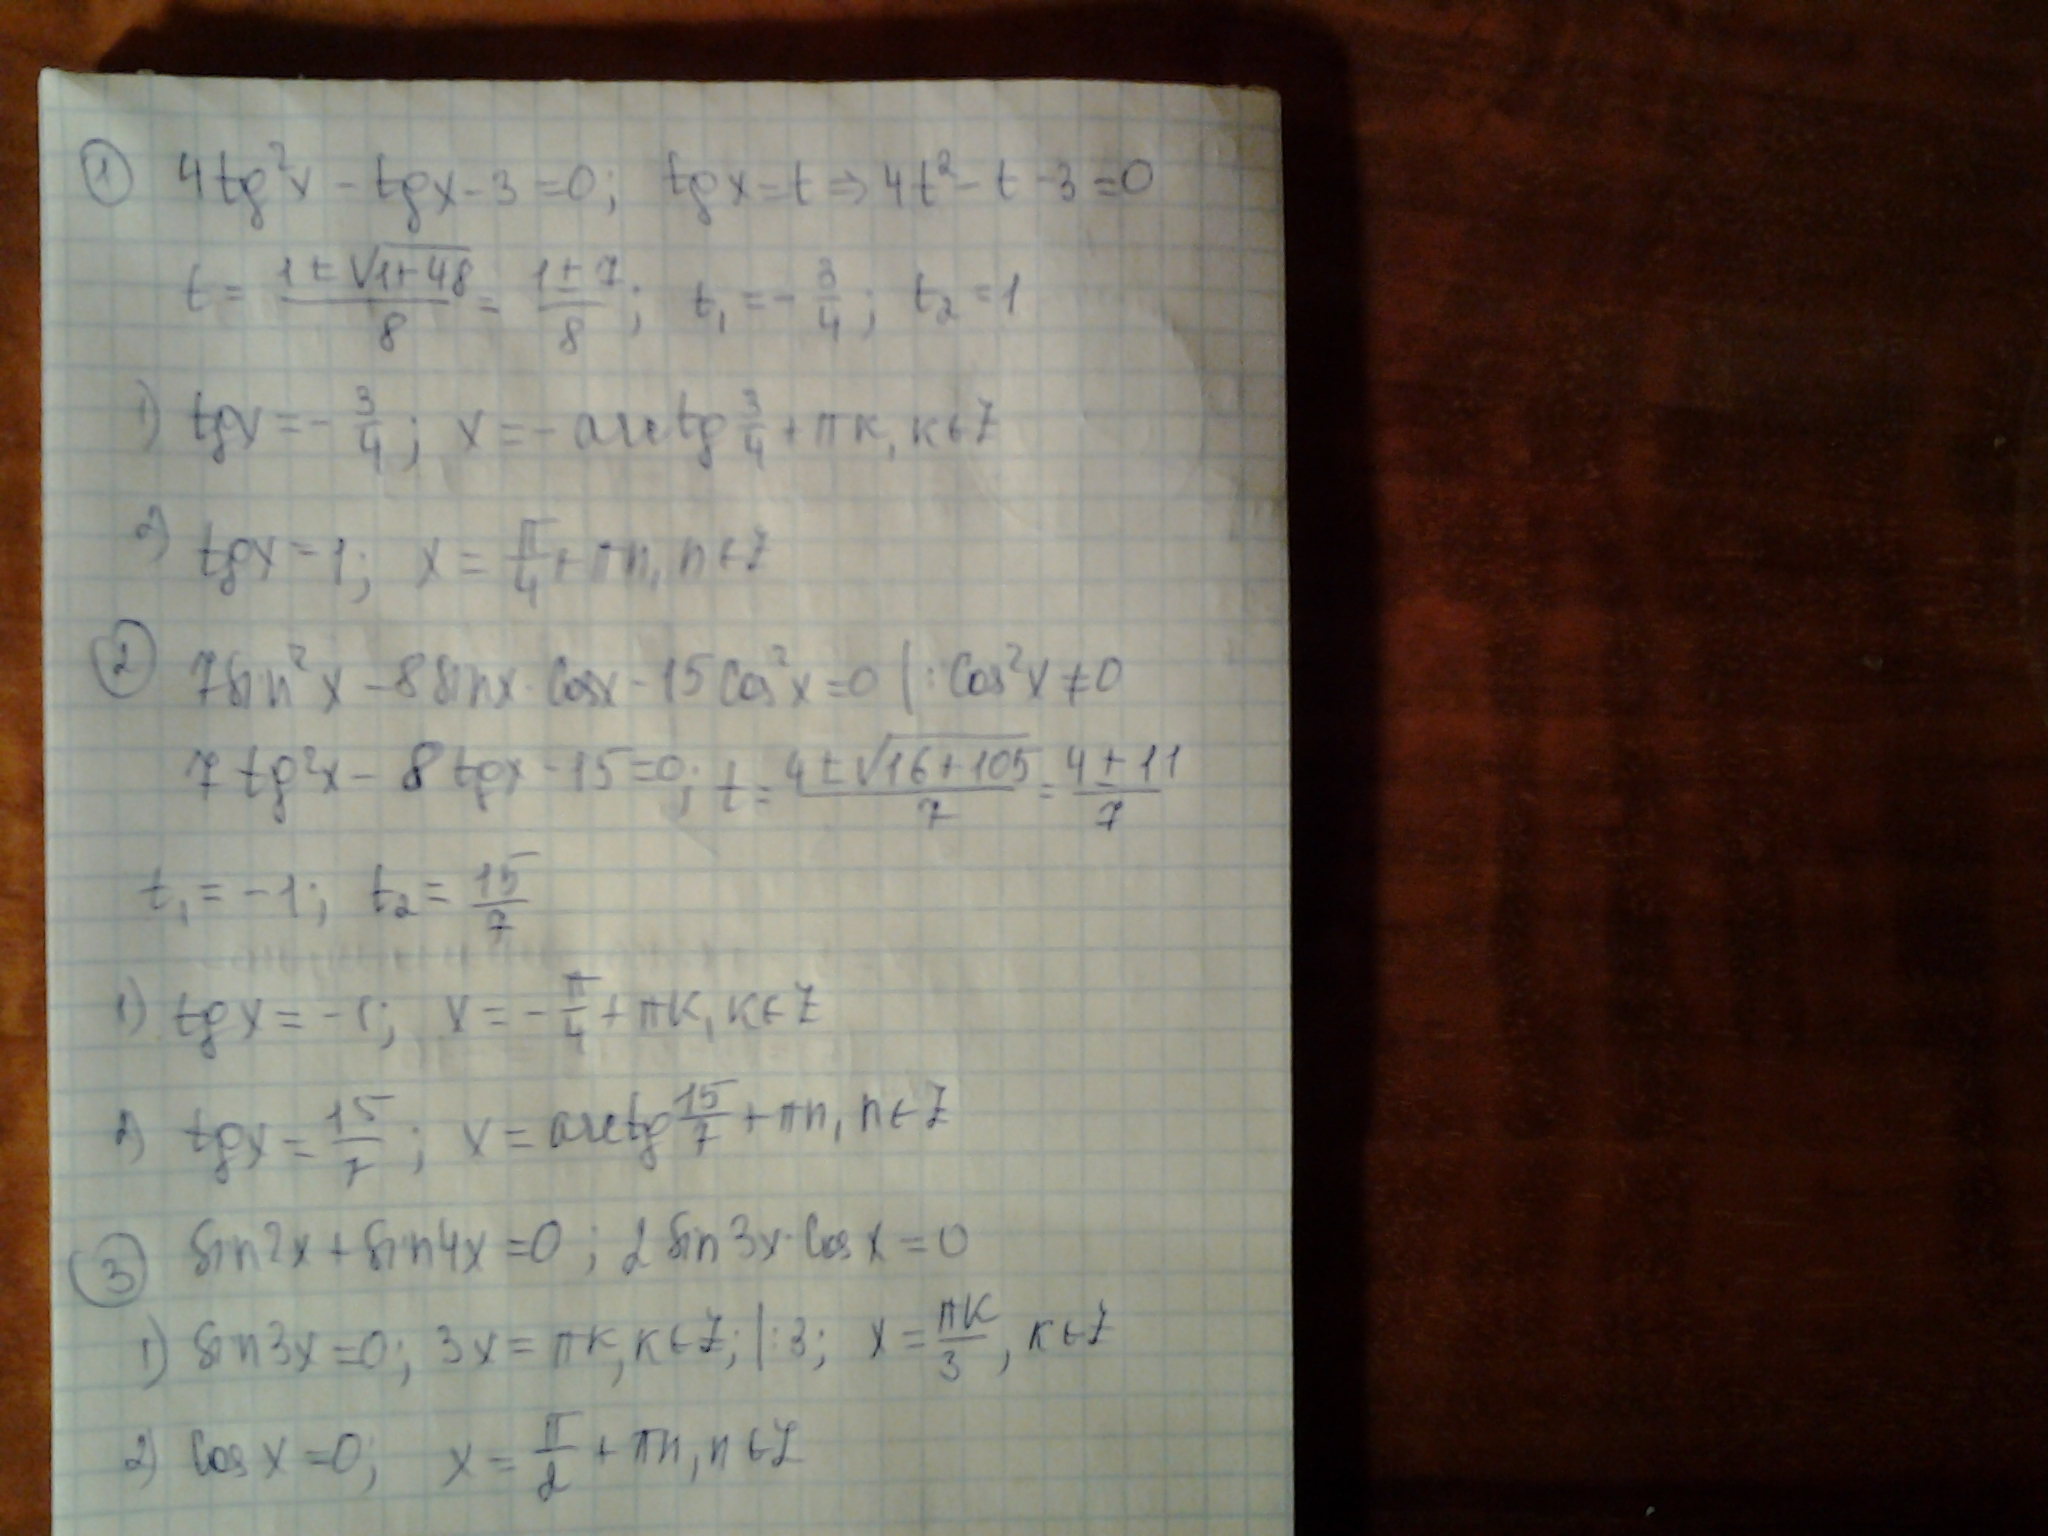 ① 4tg²x - tgx - 3 = 0; tgx = t ⇒ 4t² - t - 3 = 0
t = (1 ± √(1+48))/8 = (1 ± 7)/8; t₁ = -3/4; t₂ = 1
1) tgx = -3/4; x = -arctg 3/4 + πк, к∈Z
2) tgx = 1; x = π/4 + πn, n∈Z
② 7sin²x - 8sinx·cosx - 15cos²x = 0 |: cos²x ≠ 0
7tg²x - 8tgx - 15 = 0; t = (4 ± √(16+105))/7 = (4 ± 11)/7
t₁ = -1; t₂ = 15/7
1) tgx = -1; x = -π/4 + πк, к∈Z
2) tgx = 15/7; x = arctg 15/7 + πn, n∈Z
③ sin2x + sin4x = 0; 2sin3x·cosx = 0
1) sin3x = 0; 3x = πк, к∈Z; |:3; x = πк/3, к∈Z
2) cosx = 0; x = π/2 + πn, n∈Z